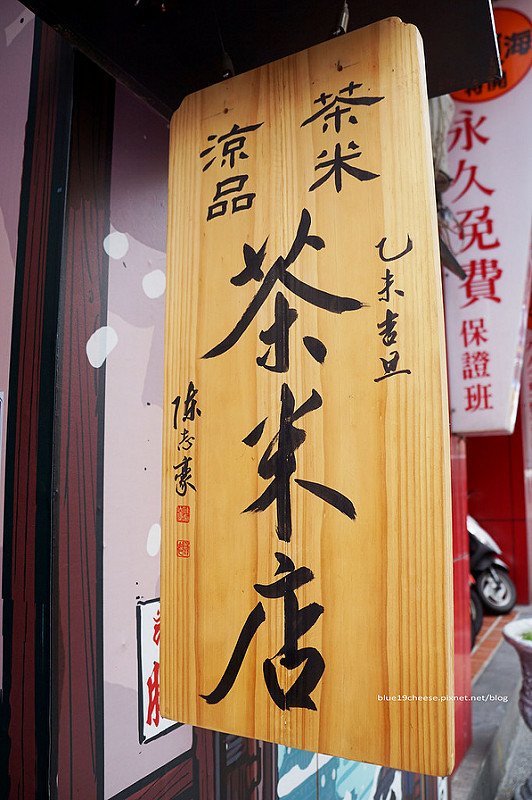 茶米
涼品
乙未吉旦
茶米店
陳志豪
永久免費
保證班
blue19cheese.pixnet.net/blog